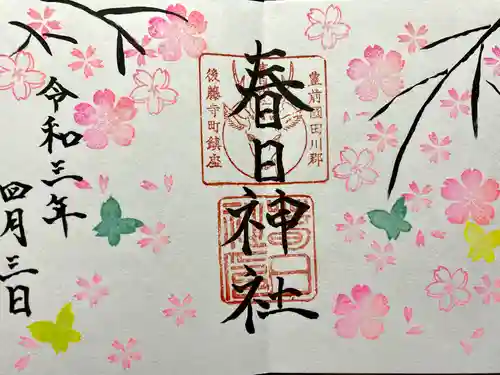 豊前國田川郡
春日神社
後藤寺町鎮座
令和三年
四月三日